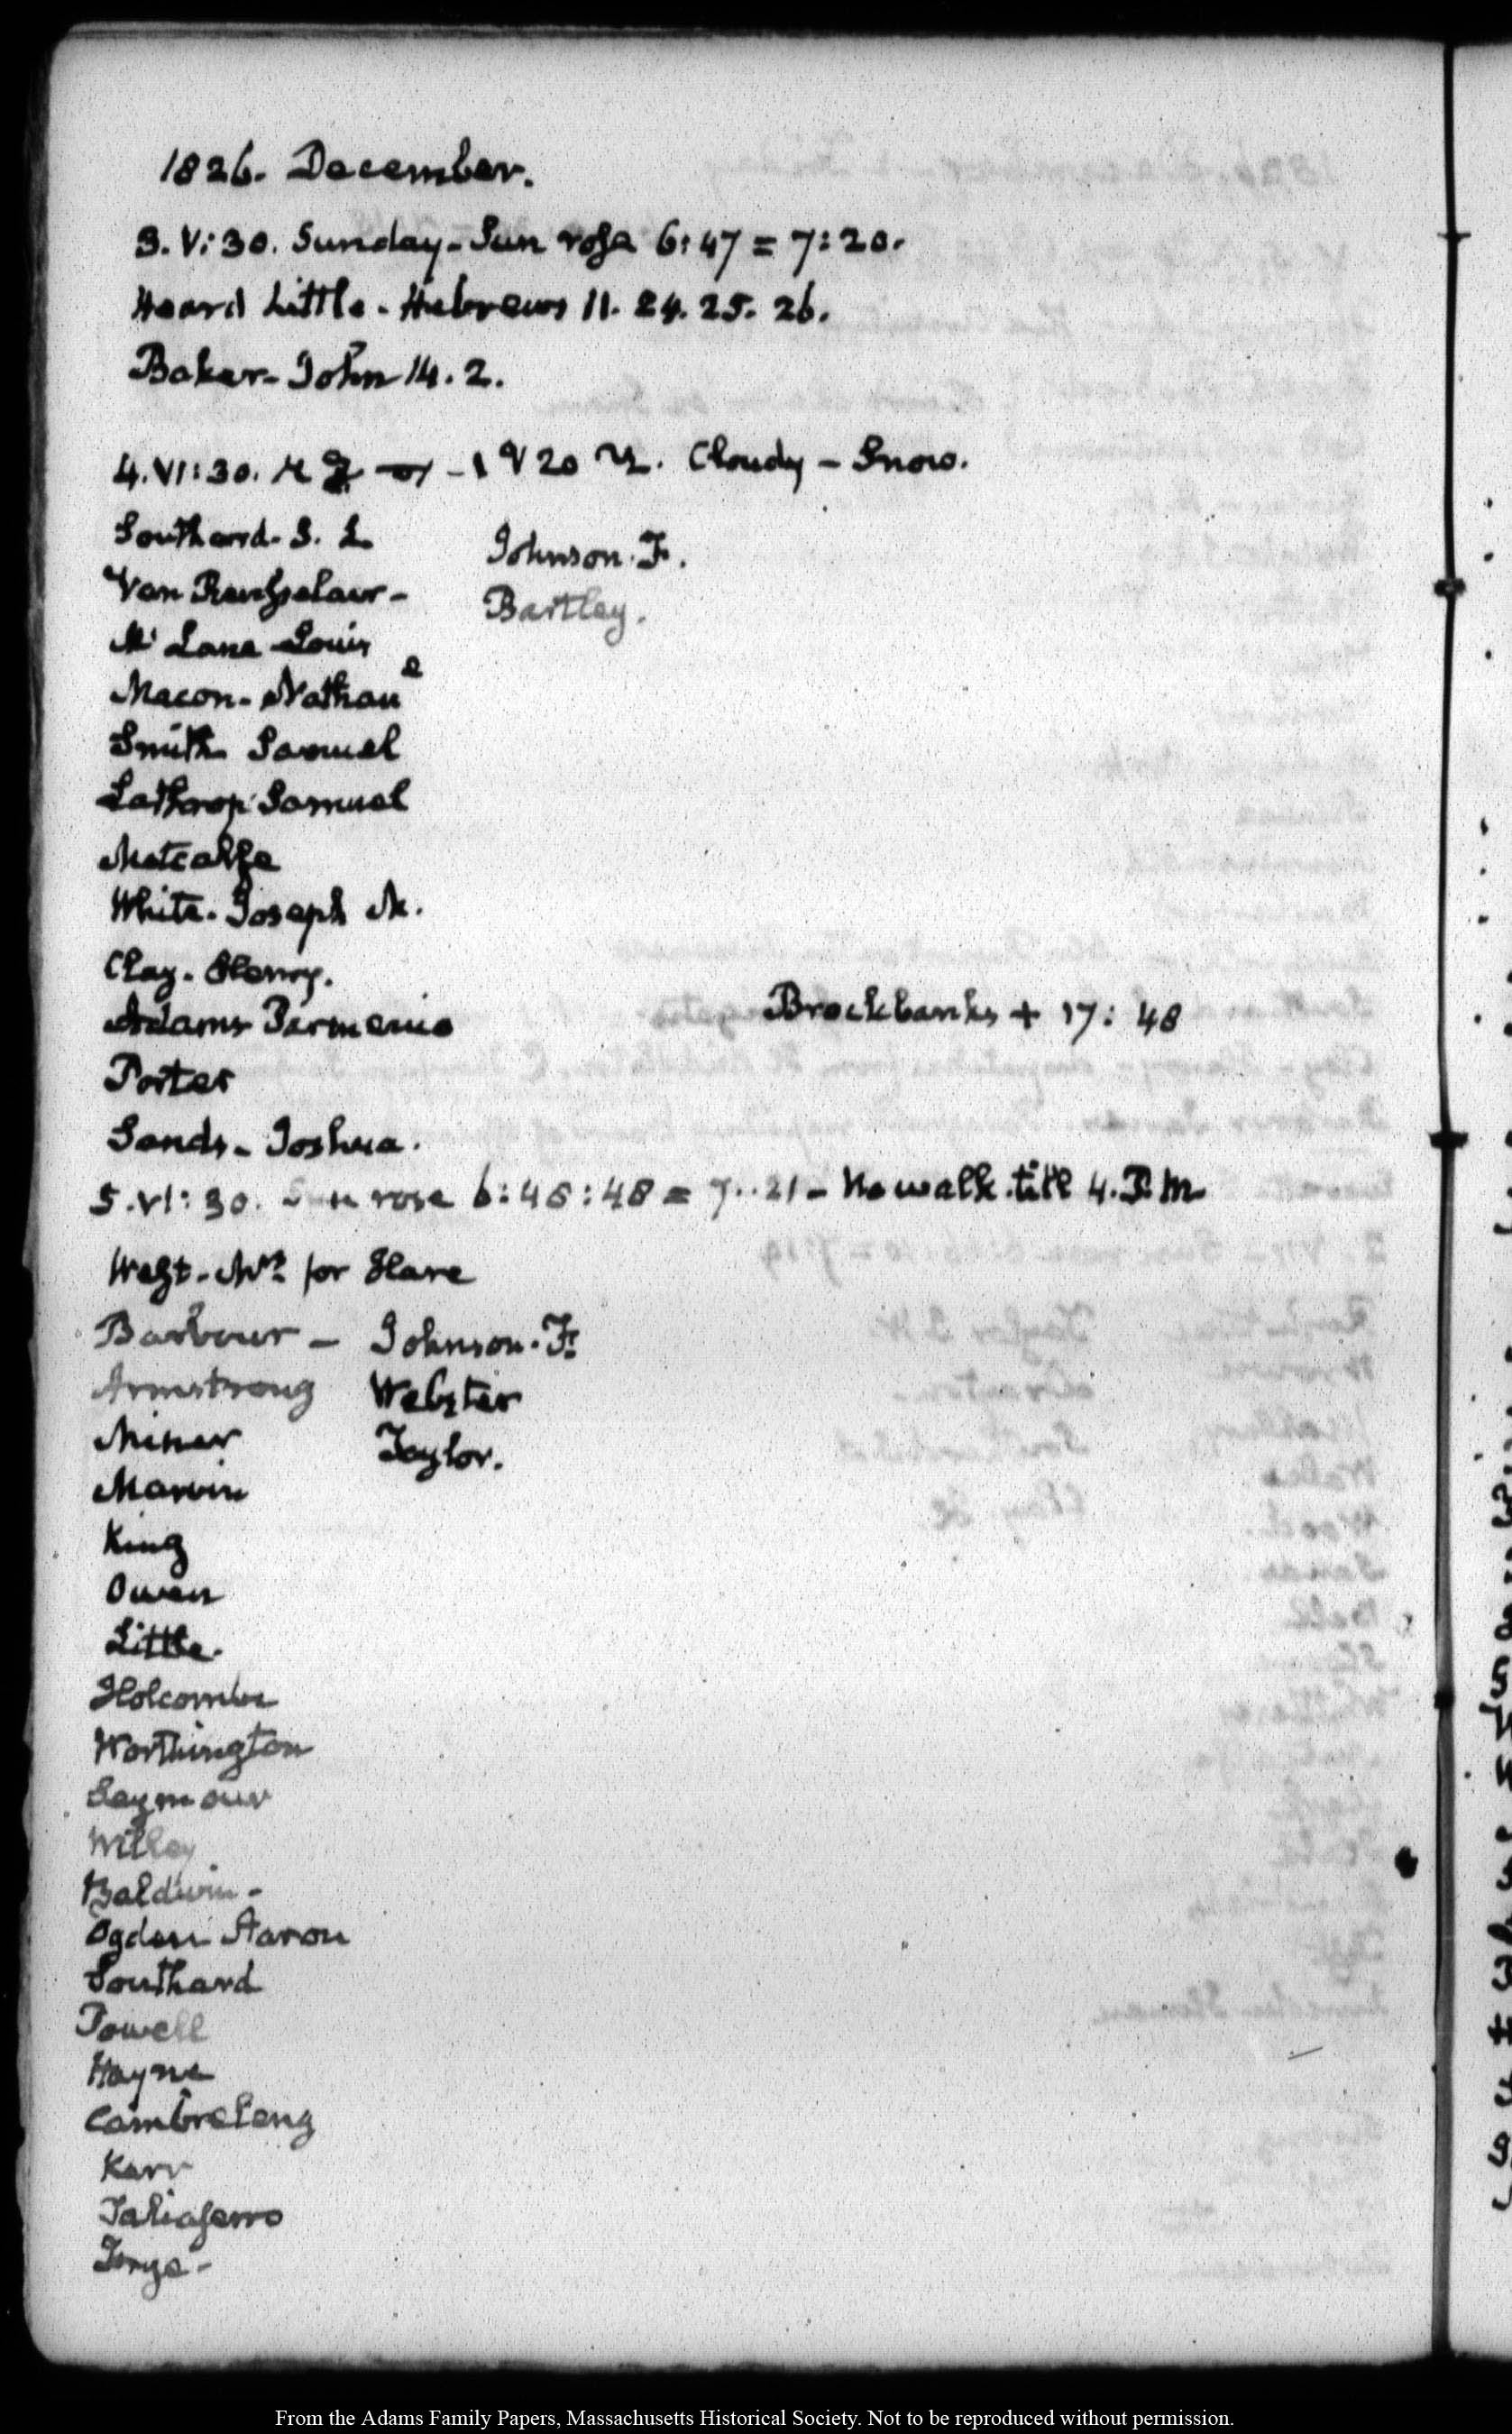 1826. December.
3. V:30. Sunday - Sun rose 6:47 = 7:20.
Heard Little - Hebrews 11. 24. 25. 26.
Baker - John 14. 2.
4. VI:30. Cloudy - Snow.
Southard. S. L.
Johnson. F.
Van Rensselaer -
Bartley.
Mc Lane Louis
Macon - Nathan
Smith Samuel
Lathrop Samuel
Metcalfe
White. Joseph M.
Clay. Henry.
Adams Parmenio
Brockbanks + 17: 48
Porter
Sands - Joshua.
5. VI:30. Sun rose 6:46:48 = 7..21 - No walk till 4. P.M.
West. Mr. for Hare
Barbour - Johnson. F.
Armstrong Webster
Miner Taylor.
Marvin
King
Owen
Little.
Holcombe
Worthington
Seymour
Willey
Baldwin -
Ogden Aaron
Southard
Powell
Hayne
Cambreleng
Kerr
Taliaferro
From the Adams Family Papers, Massachusetts Historical Society. Not to be reproduced without permission.